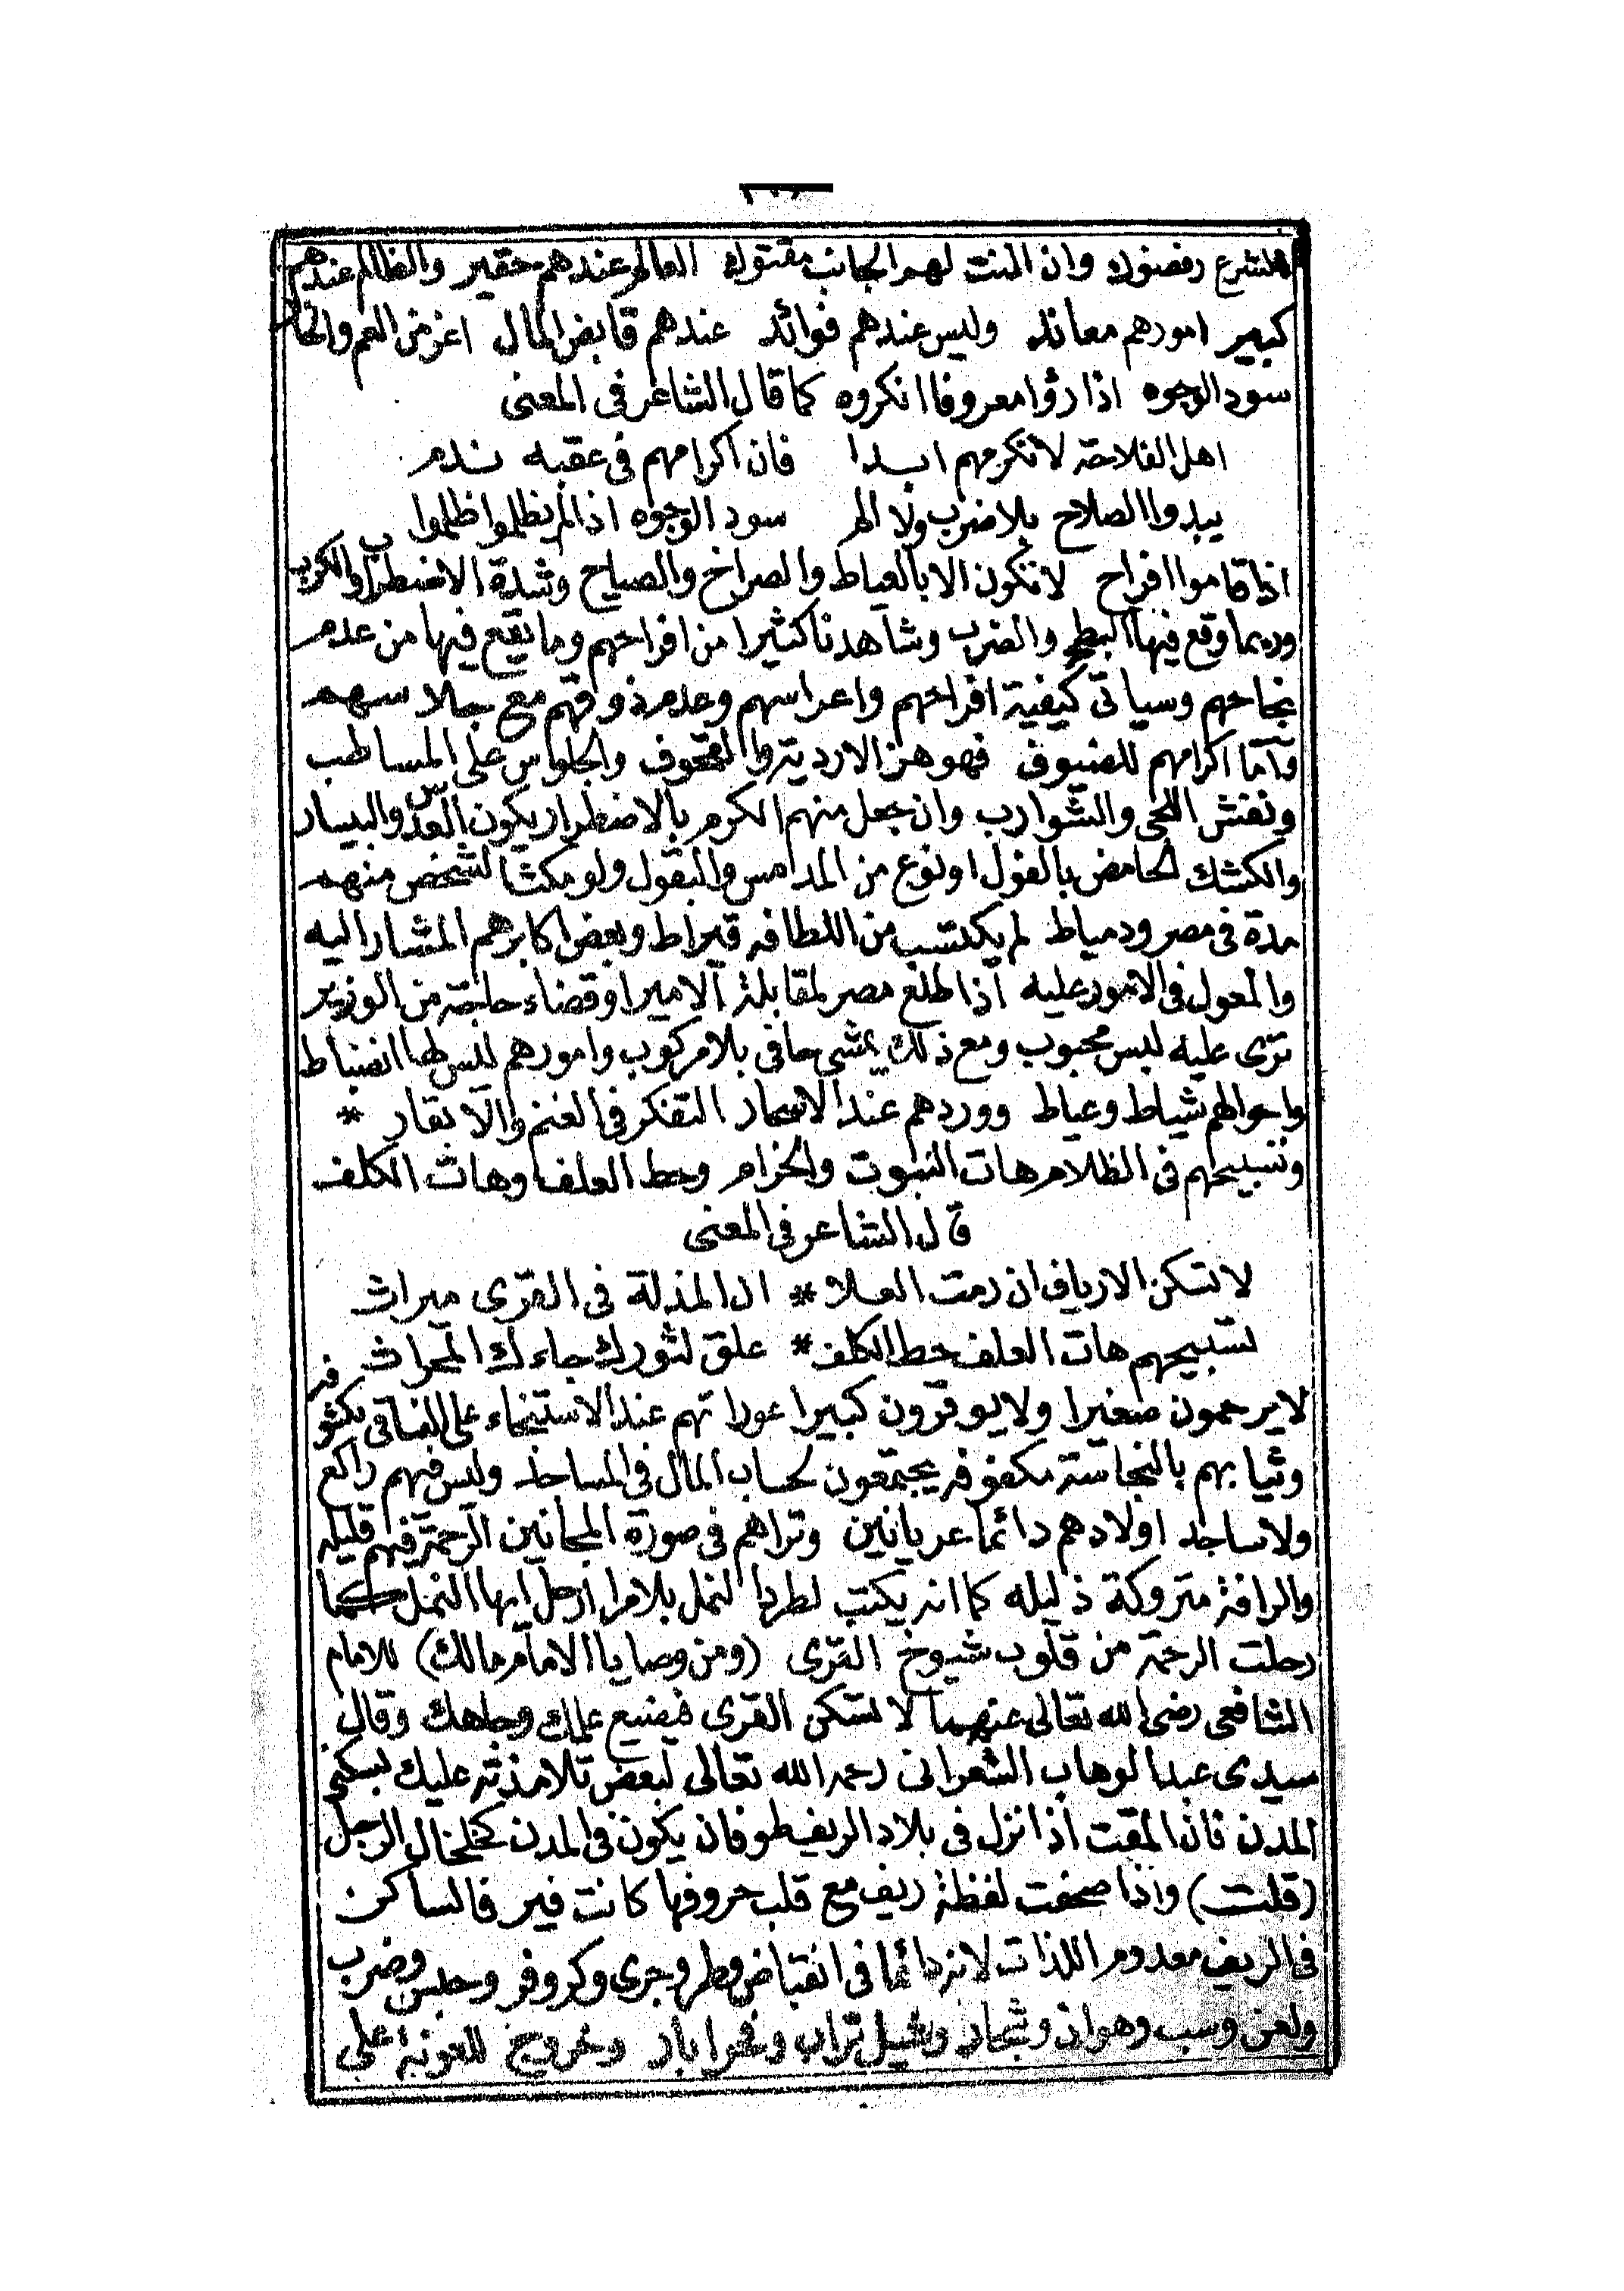 للشرع رفضوك وان المنت لهم الجانب مقتوك العالم عندهم حقير والظالم عندهم
كبير امورهم معاند وليس عندهم فوائد عندهم قابض المال اعز من العم والخال
سود الوجوه اذا رؤا معروفا انكروه كما قال الشاعر فى المعنى
اهل الفلاحة لا تكرمهم ابدا فان اكرامهم فى عقبه ندم
يبدوا الصلاح بلا ضرب ولا الم سود الوجوه اذا لم يظلموا ظلموا
اذا قاموا افراح لا تكون الا بالعياط والصراخ والصياح وشدة الاضطراب والكرب
وربما وقع فيها البطح والضرب وشاهدنا كثيرا من افراحهم وما يقع فيها من عدم
نجاحهم وسياتى كيفية افراحهم واعراسهم وعدم ذوقهم مع جلاسهم
واما اكرامهم للضيوف فهو هز الاردية والقحوف والجلوس على المساطب
ونفش اللحى والشوارب وان جعل منهم الكرم بالاضطرار يكون العدس والبيسار
والكشك الحامض بالفول او نوع من المدامس والبقول ولو مكث الشخص منهم
مدة فى مصر ودمياط لم يكتسب من اللطافه قيراط وبعض اكابرهم المشار اليه
والمعول فى الامور عليه اذا طلع مصر لمقابلة الامير او قضاء حاجة من الوزير
ترى عليه لبس محبوب ومع ذلك يمشى حافى بلا مركوب وامورهم ليس لها انضباط
واحوالهم شياط وعياط ووردهم عند الاسحار التفكر فى الغنم والابقار *
وتسبيحهم فى الظلام هات النبوت والحزام وحط العلف وهات الكلف
قال الشاعر فى المعنى
لا تسكن الارياف ان رمت العلا * ان المذلة فى القرى ميراث
تسبيحهم هات العلف حط الكلف * علق لثورك جاءك المحراث
لا يرحمون صغيرا ولا يوقرون كبيرا عوراتهم عند الاستنجاء على الفساقى مكشوفه
وثيابهم بالنجاسة مكفوفه يجتمعون لحساب المال فى المساجد وليس فيهم راكع
ولا ساجد اولادهم دائما عريانين وتراهم فى صورة المجانين الرحمة فيهم قليله
والرافة متروكة ذليله كما انه يكتب لطرد النمل بلا مرا ارحل ايها النمل كما
رحلت الرحمة من قلوب شيوخ القرى (ومن وصايا الامام مالك) للامام
الشافعى رضى الله تعالى عنهما لا تسكن القرى فيضيع علمك وجاهك وقال
سيدى عبد الوهاب الشعرانى رحمه الله تعالى لبعض تلامذته عليك بسكنى
المدن فان المقت اذا نزل فى بلاد الريف طوفان يكون فى المدن كخلخال الرجل
(قلت) واذا صحفت لفظة ريف مع قلب حروفها كانت فير فالساكن
فى الريف معدوم اللذات لانه دائما فى انقباض وطرد وجرى وكر وفر وحبس وضرب
ولعن وسب وهوان وشجار وشيل تراب وحفر ابار وخروج للعونة على